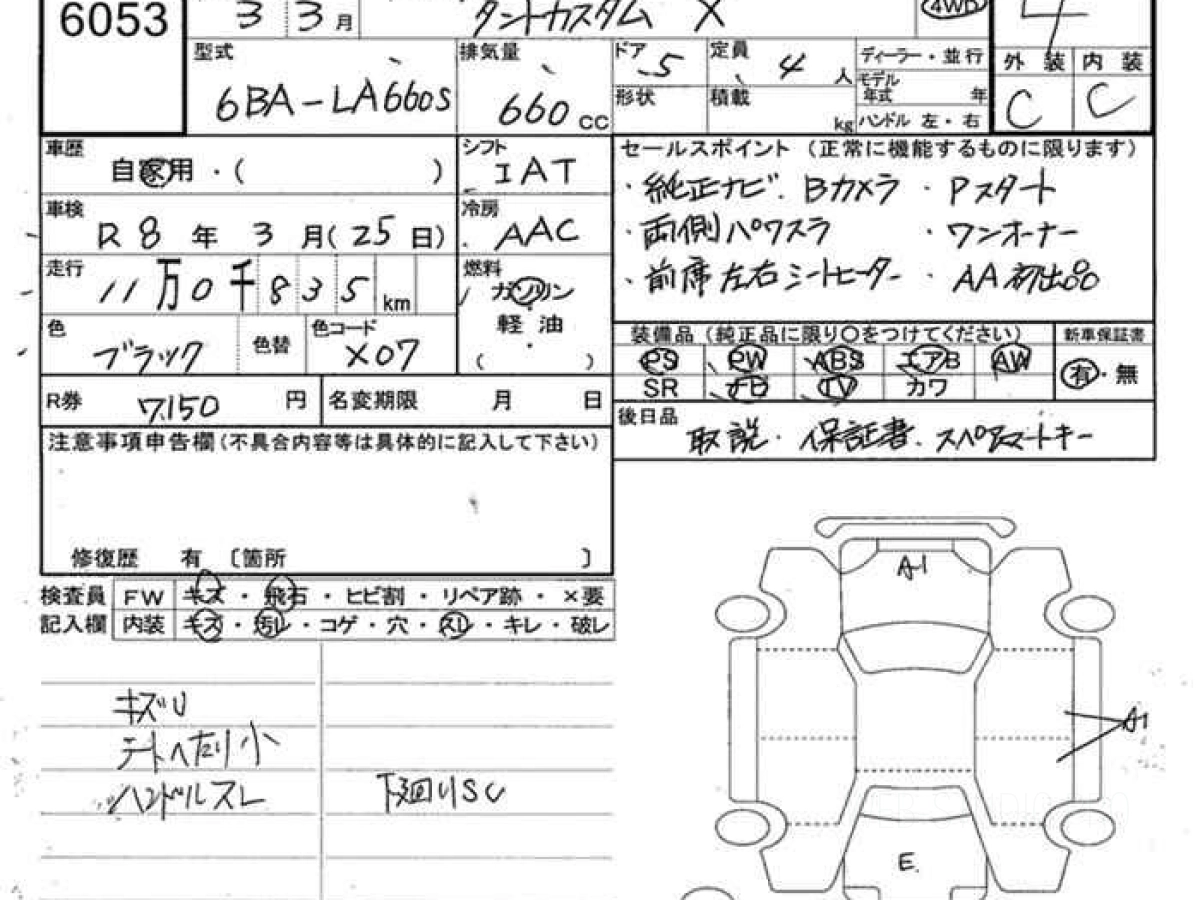 6053
3 3 月
タントカスタム X
4WD
4
型式
6BA-LA660S
排気量
660 cc
ドア 5
定員 4 人
形状
積載 kg
ディーラー・並行
モデル年式 年
ハンドル 左・右
外装 内装
C C
車歴
自家用・( )
シフト
IAT
車検
R 8 年 3 月(25日)
冷房
AAC
走行
11万0千835 km
燃料
ガソリン
軽油
( )
色
ブラック
色替
色コード
X07
セールスポイント (正常に機能するものに限ります)
・純正ナビ. Bカメラ ・Pスタート
・両側パワスラ ・ワンオーナー
・前席左右シートヒーター ・AA初出品
装備品(純正品に限り○をつけてください)
新車保証書
PS PW ABS エアB AW
有・無
SR ナビ TV カワ
R券 7,150 円
名変期限 月 日
後日品
取説・保証書.スペアスマートキー
注意事項申告欄(不具合内容等は具体的に記入して下さい)
修復歴 有 〔箇所 〕
検査員 FW キズ・飛石・ヒビ割・リペア跡・×要
記入欄 内装 キズ・汚レ・コゲ・穴・スレ・キレ・破レ
キズU
シートへたり小
ハンドルスレ
下廻りSU
A1
A1
E